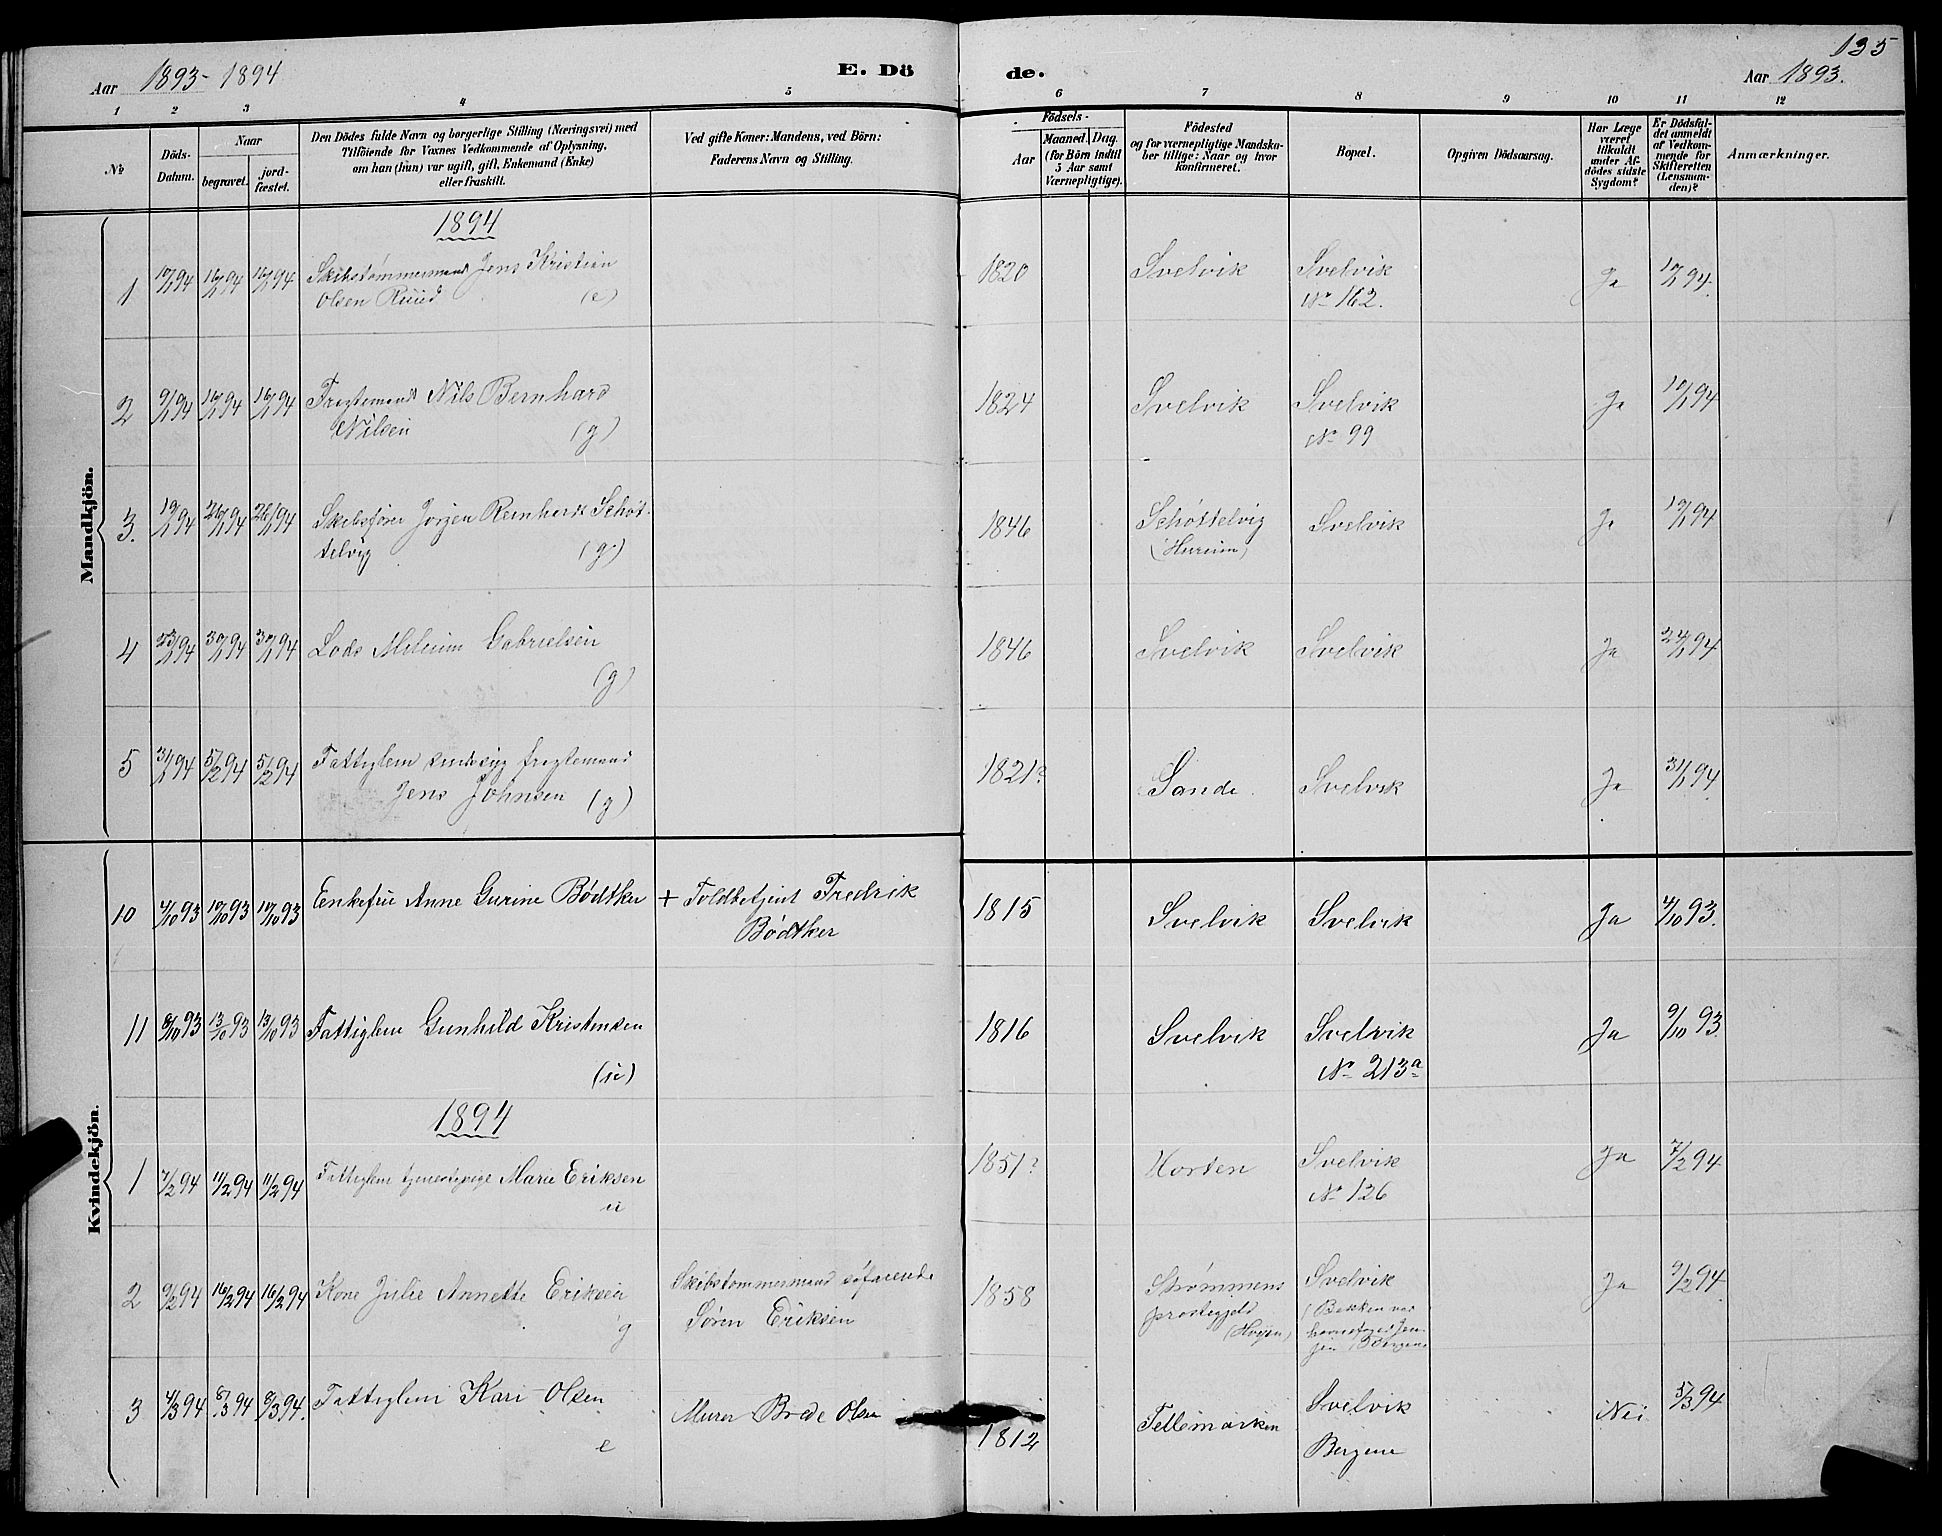 135
Aar 1893-1894
E. Dö
de.
Aar 1893.
1 2 3 4 5 6 7 8 9 10 11 12
№
Döds-
Datum.
Naar
begravet.
jord-
fæstet.
Den Dödes fulde Navn og borgerlige Stilling (Næringsvei) med
Tilföiende for Voxnes Vedkommende af Oplysning,
om han (hun) var ugift, gift, Enkemand (Enke)
eller fraskilt.
Ved gifte Koner: Mandens, ved Börn:
Faderens Navn og Stilling.
Födsels-
Aar
Maaned. Dag.
(for Börn indtil
5 Aar samt
Værnepligtige).
Födested
og for værnepligtige Mandska-
ber tillige: Naar og hvor
konfirmeret.
Bopæl.
Opgiven Dödsaarsag.
Har Læge
været
tilkaldt
under Af-
dödes sidste
Sygdom?
Er Dödsfal-
det anmeldt
af Vedkom-
mende for
Skifteretten
(Lensman-
den)?
Anmærkninger.
Mandkjön.
1894
1 10/1 94 16/1 94 16/1 94 Skibstømmermand Jens Kristian 1820 Svelvik Svelvik Ja 10/1 94.
Olsen Ruud (e) № 162.
2 9/1 94 16/1 94 16/1 94 Fragtemand Nils Bernhard 1824 Svelvik Svelvik Ja 10/1 94
Nilsen (g) № 99
3. 19/1 94 26/1 94 26/1 94 Skibsfører Jørgen Reinhardt Schøt- 1846 Schøttelvig Svelvik Ja 19/1 94
telvig (g) (Hurum)
4 23/1 94 30/1 94 30/1 94 Lods Gabrielsen 1846 Svelvik Svelvik Ja 24/1 94
(g)
5 31/1 94 5/2 94 5/2 94 Fattiglem sindssyg fragtemand 1821? Sande. Svelvik Ja 31/1 94
Jens Johnsen (g)
Kvindekjön.
10 4/10 93 10/10 93 10/10 93 Enkefru Anne Gurine Bødtker + Toldbetjent Fredrik 1815 Svelvik Svelvik Ja 4/10 93.
Bødtker
11 8/10 93 13/10 93 13/10 93 Fattiglem Gunhild Kristensen 1816 Svelvik Svelvik Ja 9/10 93
(u) № 213a
1894
1 7/2 94 11/2 94 11/2 94 Fattiglem tjenestepige Marie Eriksen 1851? Horten Svelvik Ja 7/2 94
u № 126
2 9/2 94 16/2 94 16/2 94 Kone Julie Annette Eriksen Skibstømmermand søfarende 1858 Strømmens Svelvik Ja 9/2 94
g Søren Eriksen prestegjeld
(Bakken
3 4/3 94 8/3 94 8/3 94. Fattiglem Kari Olsen Murer Brede Olsen 1812 Tellemarken Svelvik Nei 5/3 94
e Bergene